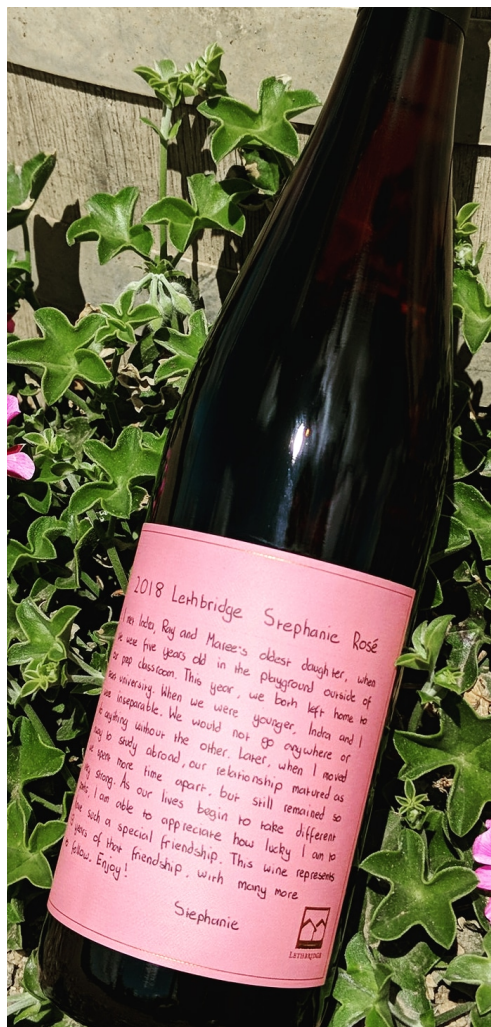 2018 Lethbridge Stephanie Rosé
met Indra, Ray and Maree's oldest daughter, when
were five years old in the playground outside of
pop classroom. This year, we both left home to
university. When we were younger, Indra and I
inseparable. We would not go anywhere or
anything without the other. Later, when I moved
away to study abroad, our relationship matured as
spent more time apart, but still remained so
strong. As our lives begin to take different
I am able to appreciate how lucky I am to
such a special friendship. This wine represents
years of that friendship, with many more
follow. Enjoy!
Stephanie
LETHBRIDGE